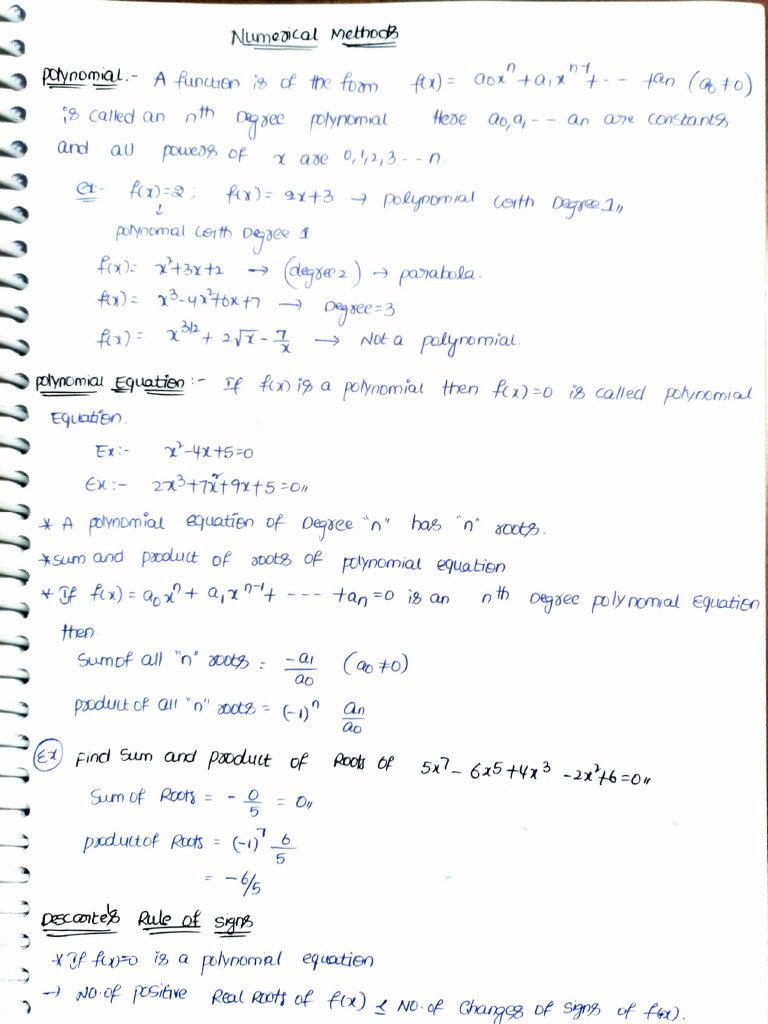 Numerical Methods
polynomial:- A function is of the form f(x) = a₀xⁿ + a₁xⁿ⁻¹ + -- + aₙ (a₀ ≠ 0)
is called an nth Degree polynomial. Here a₀, a₁ -- aₙ are constants
and all powers of x are 0,1,2,3 -- n.
ex- f(x)=2; f(x) = 2x+3 → polynomial with Degree 1,,
↓
polynomal with Degree 1
f(x) = x²+3x+2 → (degree 2) → parabola.
f(x) = x³-4x²+6x+7 → Degree=3
f(x) = x^3/2 + 2√x - 7/x → Not a polynomial.
polynomial Equation:- If f(x) is a polynomial then f(x)=0 is called polynomial
Equation.
Ex:- x²-4x+5=0
Ex:- 2x³+7x²+9x+5=0,,
* A polynomial equation of Degree "n" has "n" roots.
* sum and product of roots of polynomial equation
* If f(x) = a₀xⁿ + a₁xⁿ⁻¹ + --- + aₙ = 0 is an nth Degree polynomial Equation
then
Sum of all "n" roots = -a₁/a₀ (a₀ ≠ 0)
product of all "n" roots = (-1)ⁿ aₙ/a₀
Ex Find Sum and product of Roots of 5x⁷ - 6x⁵ + 4x³ - 2x² + 6 = 0,,
Sum of Roots = - 0/5 = 0,,
product of Roots = (-1)⁷ 6/5
= -6/5
Descarte's Rule of signs
* If f(x)=0 is a polynomial equation
→ NO. of positive Real Roots of f(x) ≤ NO. of changes of signs of f(x).